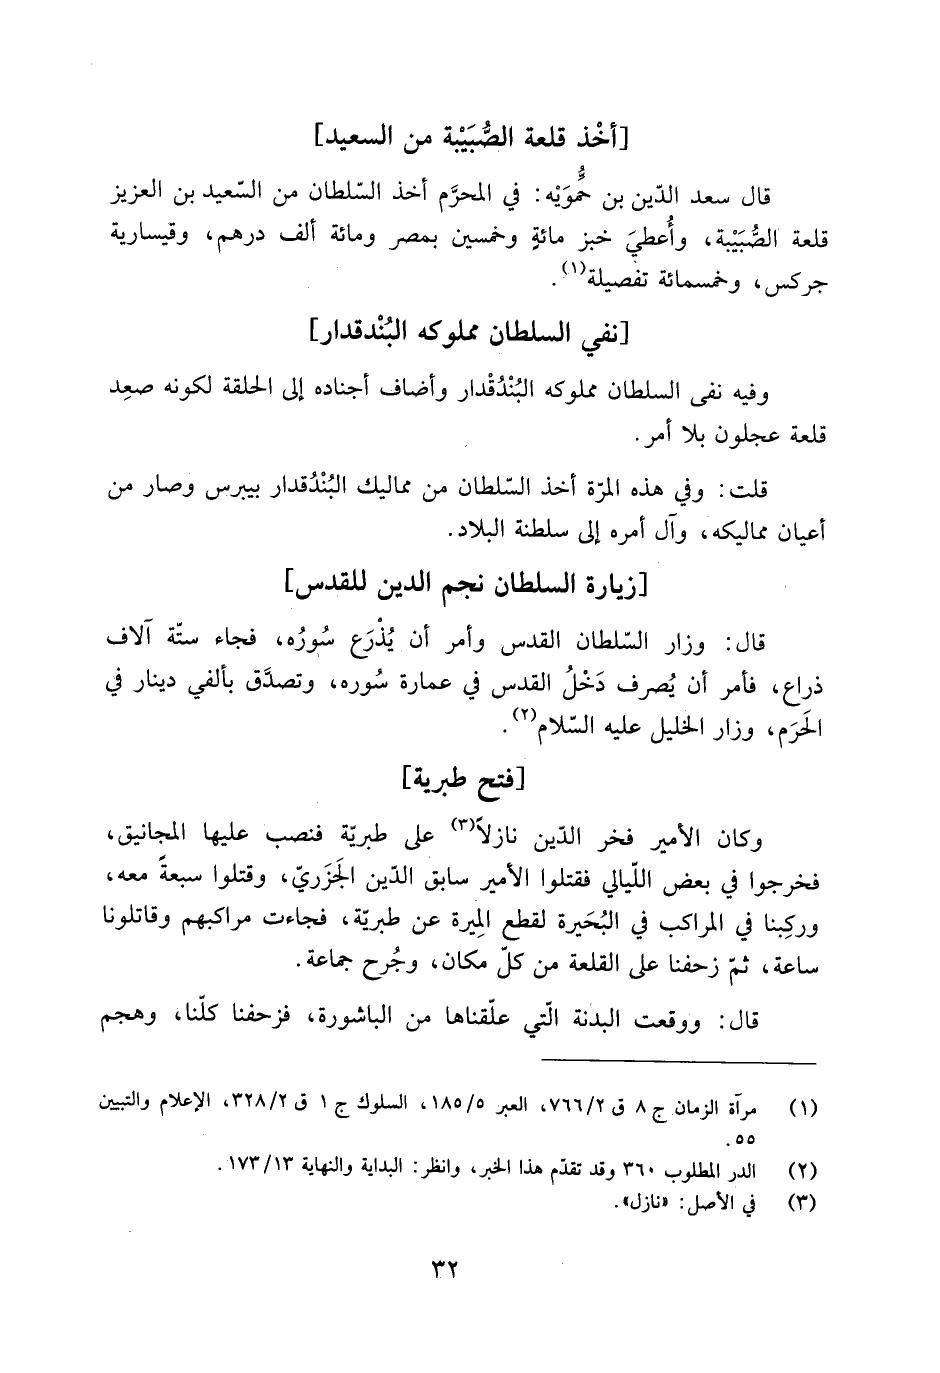 [أخْذ قلعة الصُّبَيْبة من السعيد]
قال سعد الدّين بن حُّمَوَيْه: في المحرَّم أخذ السّلطان من السّعيد بن العزيز
قلعة الصُّبَيْبة، وأُعطيَ خبز مائةٍ وخمسين بمصر ومائة ألف درهم، وقيسارية
جركس، وخمسمائة تفصيلة(١).
[نفي السلطان مملوكه البُنْدقدار]
وفيه نفى السلطان مملوكه البُنْدُقْدار وأضاف أجناده إلى الحلقة لكونه صعِد
قلعة عجلون بلا أمر.
قلت: وفي هذه المرّة أخذ السّلطان من مماليك البُنْدُقدار بيبرس وصار من
أعيان مماليكه، وآل أمره إلى سلطنة البلاد.
[زيارة السلطان نجم الدين للقدس]
قال: وزار السّلطان القدس وأمر أن يُذْرَع سُورُه، فجاء ستّة آلاف
ذراع، فأمر أن يُصرف دَخْلُ القدس في عمارة سُوره، وتصدَّق بألفي دينار في
الحَرَم، وزار الخليل عليه السّلام(٢).
[فتح طبرية]
وكان الأمير فخر الدّين نازلاً(٣) على طبريّة فنصب عليها المجانيق،
فخرجوا في بعض اللّيالي فقتلوا الأمير سابق الدّين الجَزَريّ، وقتلوا سبعةً معه،
وركِبنا في المراكب في البُحَيرة لقطع المِيرة عن طبريّة، فجاءت مراكبهم وقاتلونا
ساعة، ثمّ زحفنا على القلعة من كلّ مكان، وجُرح جماعة.
قال: ووقعت البدنة الّتي علّقناها من الباشورة، فزحفنا كلّنا، وهجم
(١) مرآة الزمان ج ٨ ق ٧٦٦/٢، العبر ١٨٥/٥، السلوك ج ١ ق ٣٢٨/٢، الإعلام والتبيين
٥٥.
(٢) الدر المطلوب ٣٦٠ وقد تقدّم هذا الخبر، وانظر: البداية والنهاية ١٧٣/١٣.
(٣) في الأصل: «نازل».
٣٢